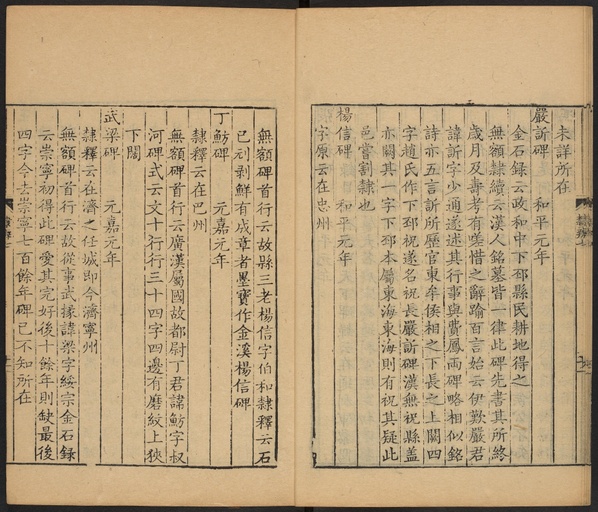 未詳所在
嚴訢碑　和平元年
金石錄云政和中下邳縣民耕地得之
無額隸續云漢人銘墓皆一律此碑先書其所終
歲月及壽考有嗟惜之辭踰百言始云伊歎嚴君
諱訢字少通遂述其行事與費鳳兩碑略相似銘
詩亦五言訢所歷官東牟侯相之下長之上闕四
字趙氏作下邳祝遂名祝長嚴訢碑漢無祝縣蓋
亦闕其一字下邳本屬東海東海則有祝其疑此
邑嘗割隸也
楊信碑　和平元年
字原云在忠州
無額碑首行云故縣三老楊信字伯和隸釋云石
已刓剥鮮有成章者墨寶作金溪楊信碑
丁魴碑　元嘉元年
隸釋云在巴州
無額碑首行云廣漢屬國故都尉丁君諱魴字叔
河碑式云文十行行三十四字四邊有磨紋上狹
下闊
武梁碑　元嘉元年
隸釋云在濟之任城即今濟寧州
無額碑首行云故從事武掾諱梁字綏宗金石錄
云崇寧初得此碑愛其完好後十餘年則缺最後
四字今去崇寧七百餘年碑已不知所在